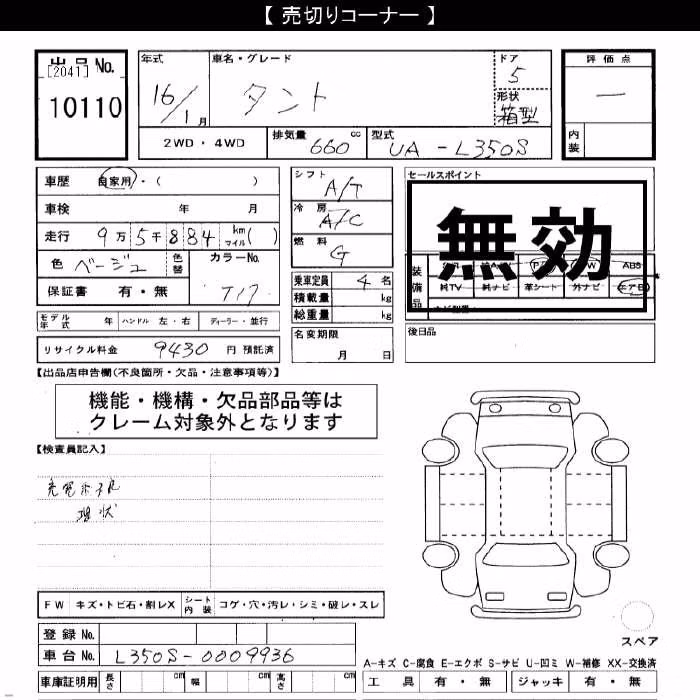 【 売切りコーナー 】
出品 No.
[2041]
10110
年式
16/1月
車名・グレード
タント
ドア
5
形状
箱型
評価点
—
内装
2WD・4WD
排気量
660 cc
型式
UA-L350S
車歴 自家用・( )
車検 年 月
走行 9万5千884 km マイル( )
色 ベージュ
色替
カラーNo.
T17
保証書 有・無
モデル年式 年 ハンドル 左・右 ディーラー・並行
リサイクル料金 9430 円 預託済
シフト
A/T
冷房
A/C
燃料
G
乗車定員 4 名
積載量 kg
総重量 kg
名変期限
月 日
セールスポイント
無効
装備品
ABS
純TV 純ナビ 革シート 外ナビ エアB
後日品
【出品店申告欄(不良箇所・欠品・注意事項等)】
機能・機構・欠品部品等は
クレーム対象外となります
【検査員記入】
現状
FW キズ・トビ石・割レX シート内装 コゲ・穴・汚レ・シミ・破レ・スレ
登録 No.
車台 No. L350S-0009936
車庫証明用 長さ cm 幅 cm 高さ cm
スペア
A-キズ C-腐食 E-エクボ S-サビ U-凹ミ W-補修 XX-交換済
工具 有・無 ジャッキ 有・無